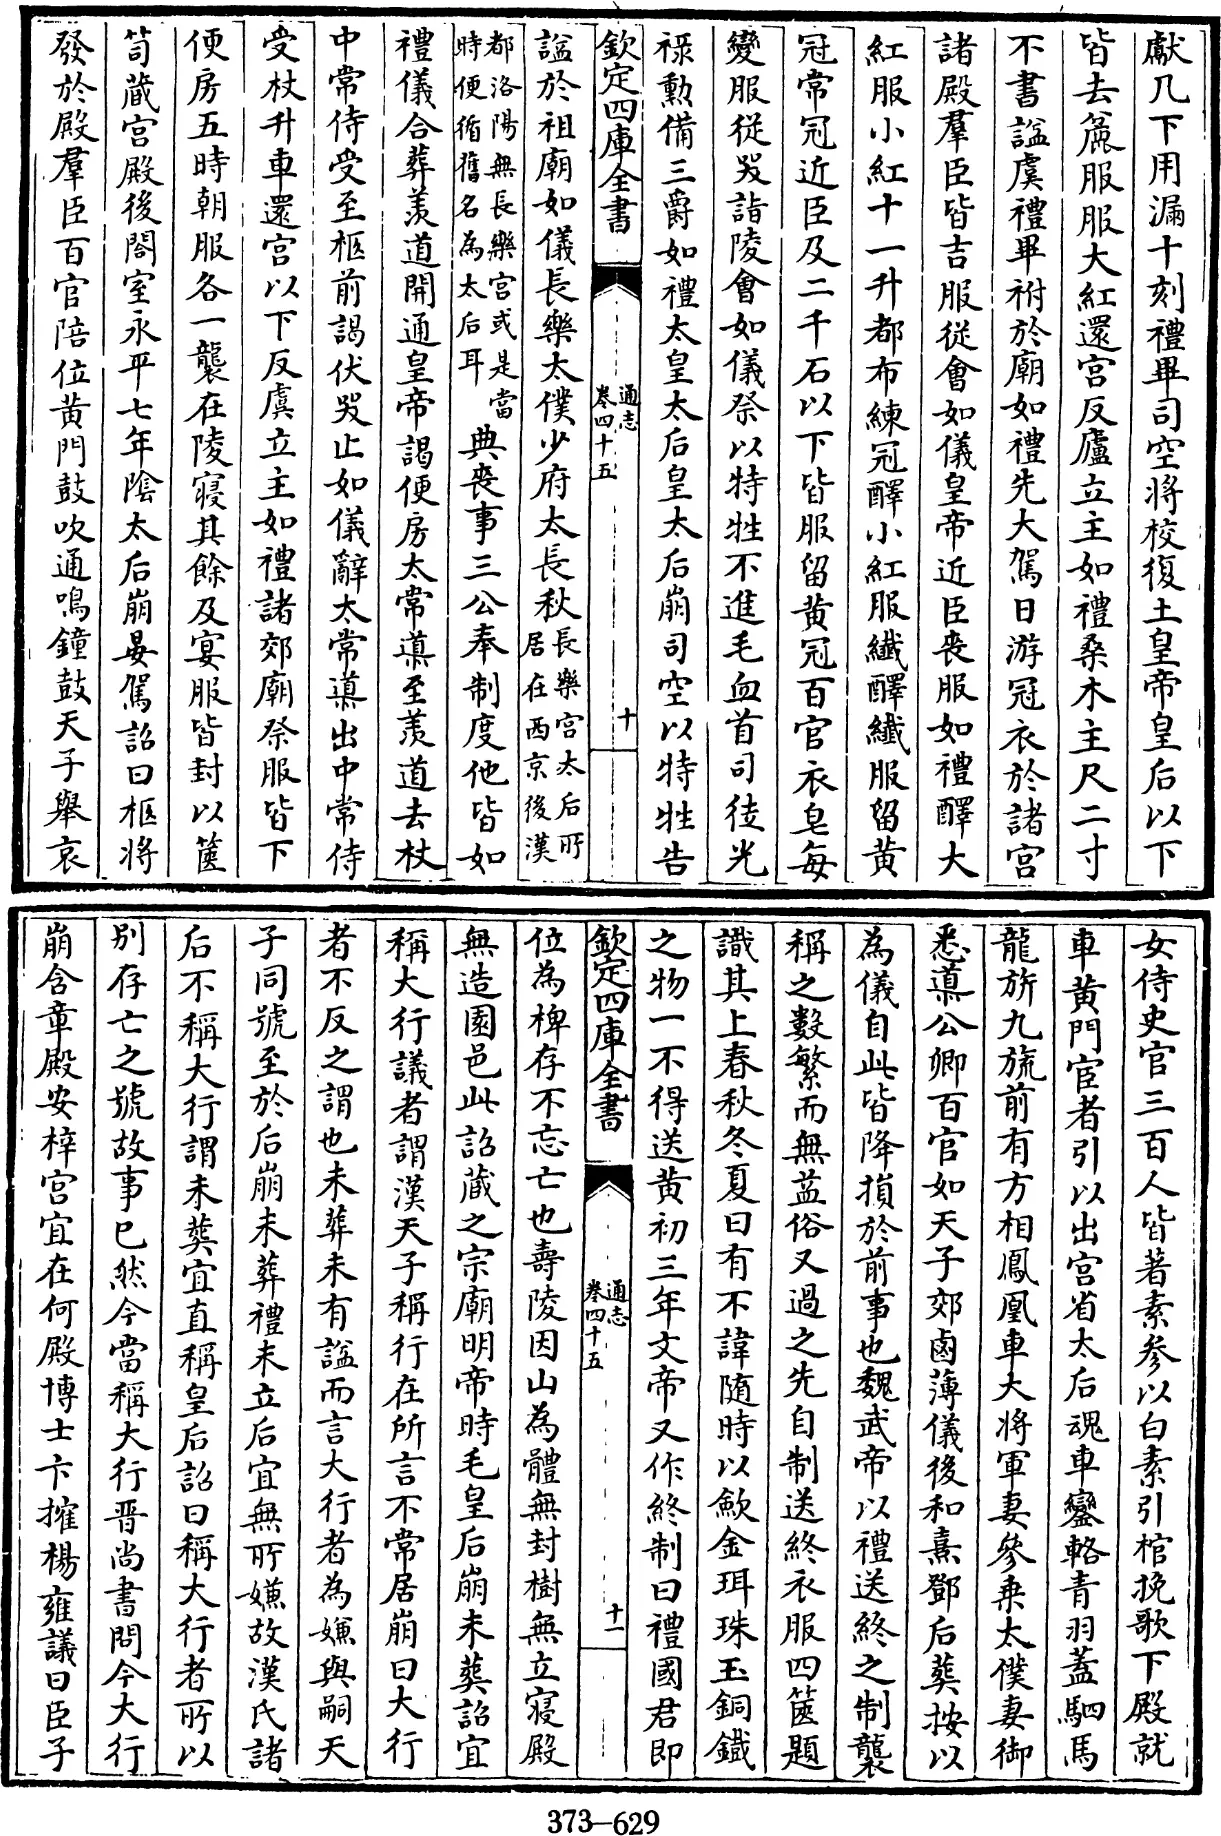 獻几下用漏十刻禮畢司空將校復土皇帝皇后以下
皆去麤服服大紅還宫反廬立主如禮桑木主尺二寸
不書謚虞禮畢祔於廟如禮先大駕日游冠衣於諸宫
諸殿羣臣皆吉服從會如儀皇帝近臣喪服如禮醳大
紅服小紅十一升都布練冠醳小紅服纖醳纖服留黄
冠常冠近臣及二千石以下皆服留黄冠百官衣皂每
變服從哭詣陵會如儀祭以特牲不進毛血首司徒光
禄勲備三爵如禮太皇太后皇太后崩司空以特牲告
欽定四庫全書 通志 卷四十五 十
謚於祖廟如儀長樂太僕少府太長秋長樂宫太后所居在西京後漢
都洛陽無長樂宫或是當時便循舊名為太后耳典喪事三公奉制度他皆如
禮儀合葬羡道開通皇帝謁便房太常導至羡道去杖
中常侍受至柩前謁伏哭止如儀辭太常導出中常侍
受杖升車還宫以下反虞立主如禮諸郊廟祭服皆下
便房五時朝服各一襲在陵寢其餘及宴服皆封以篋
笥藏宫殿後閤室永平七年陰太后崩晏駕詔曰柩將
發於殿羣臣百官陪位黄門鼓吹通鳴鐘鼓天子舉哀
女侍史官三百人皆著素参以白素引棺挽歌下殿就
車黄門宦者引以出宫省太后魂車鸞輅青羽蓋駟馬
龍旂九旒前有方相鳳凰車大將軍妻參乗太僕妻御
悉導公卿百官如天子郊鹵薄儀後和熹鄧后葬按以
為儀自此皆降損於前事也魏武帝以禮送終之制襲
稱之數繁而無益俗又過之先自制送終衣服四篋題
識其上春秋冬夏日有不諱隨時以歛金珥珠玉銅鐵
之物一不得送黄初三年文帝又作終制曰禮國君即
欽定四庫全書 通志 卷四十五 十一
位為椑存不忘亡也壽陵因山為體無封樹無立寢殿
無造園邑此詔藏之宗廟明帝時毛皇后崩未葬詔宜
稱大行議者謂漢天子稱行在所言不常居崩曰大行
者不反之謂也未葬未有謚而言大行者為嫌與嗣天
子同號至於后崩未葬禮未立后宜無所嫌故漢氏諸
后不稱大行謂未葬宜直稱皇后詔曰稱大行者所以
别存亡之號故事已然今當稱大行晋尚書問今大行
崩含章殿安梓宫宜在何殿博士卞搉楊雍議曰臣子
373–629